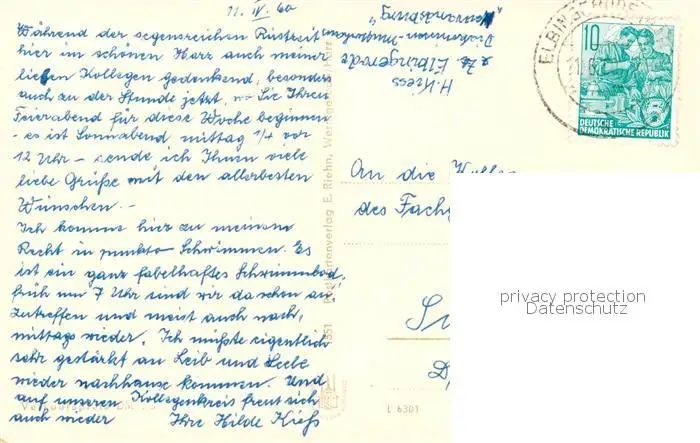 11. IV. 60
Während der segensreichen Rüstzeit
hier im schönen Harz auch meiner
lieben Kollegen gedenkend, besonders
auch zu der Stunde jetzt, wo Sie Ihren
Feierabend für diese Woche beginnen
- es ist Sonnabend mittag 1/4 vor
12 Uhr - sende ich Ihnen viele
liebe Grüße mit den allerbesten
Wünschen. -
Ich komme hier zu meinem
Recht in punkto Schwimmen. Es
ist ein ganz fabelhaftes Schwimmbad,
früh um 7 Uhr sind wir da schon an-
zutreffen und meist auch nach-
mittags wieder. Ich müßte eigentlich
sehr gestärkt an Leib und Seele
wieder nachhause kommen. Und
auf unseren Kollegenkreis freut sich
auch wieder Ihre Hilde Kieß
H. Kiess
z. Zt. Elbingerode
Diakonissen-Mutterhaus
"Neuvandsburg"
An die
des
ELBINGERODE
10
DEUTSCHE
DEMOKRATISCHE REPUBLIK
E. Riehn, Wernigerode
L 6301
privacy protection
Datenschutz